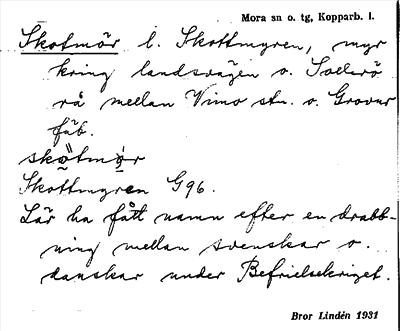 Mora sn o. tg, Kopparb. l.
Skotmör l. Skottmyren, myr
kring landsvägen o. Sollerö
rå mellan Vimo stn. o. Grovur
fäb.
skötmör
Skottmyren G96.
Lär ha fått namn efter en drabb-
ning mellan svenskar o.
danskar under Befrielsekriget.
Bror Lindén 1931